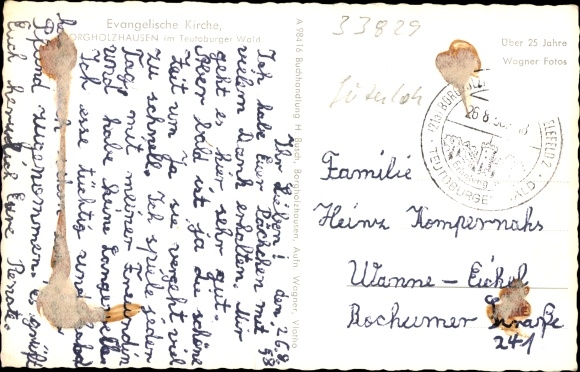 Evangelische Kirche,
BORGHOLZHAUSEN im Teutoburger Wald
A 98416 Buchhandlung H. Busch, Borgholzhausen, Aufn. Wagner, Vlotho
Über 25 Jahre
Wagner Fotos
33829
Gütersloh
BORGHOLZ
BIELEFELD
26.8.58
TEUTOBURGER WALD
den 26.8.58
Ihr Lieben!
Ich habe Euer Päckchen mit
vielem Dank erhalten. Mir
geht es hier sehr gut.
Aber bald ist ja die schöne
Zeit um. Ja sie vergeht viel
zu schnell. Ich spiele jeden
Tag mit meiner Freundin
und habe keine Langeweile.
Ich esse tüchtig und
Pfund zugenommen. Es grüßt
Euch herzlich Eure Renate.
Familie
Heinz Kompernahs
Wanne-Eickel
Bochumer Straße
241